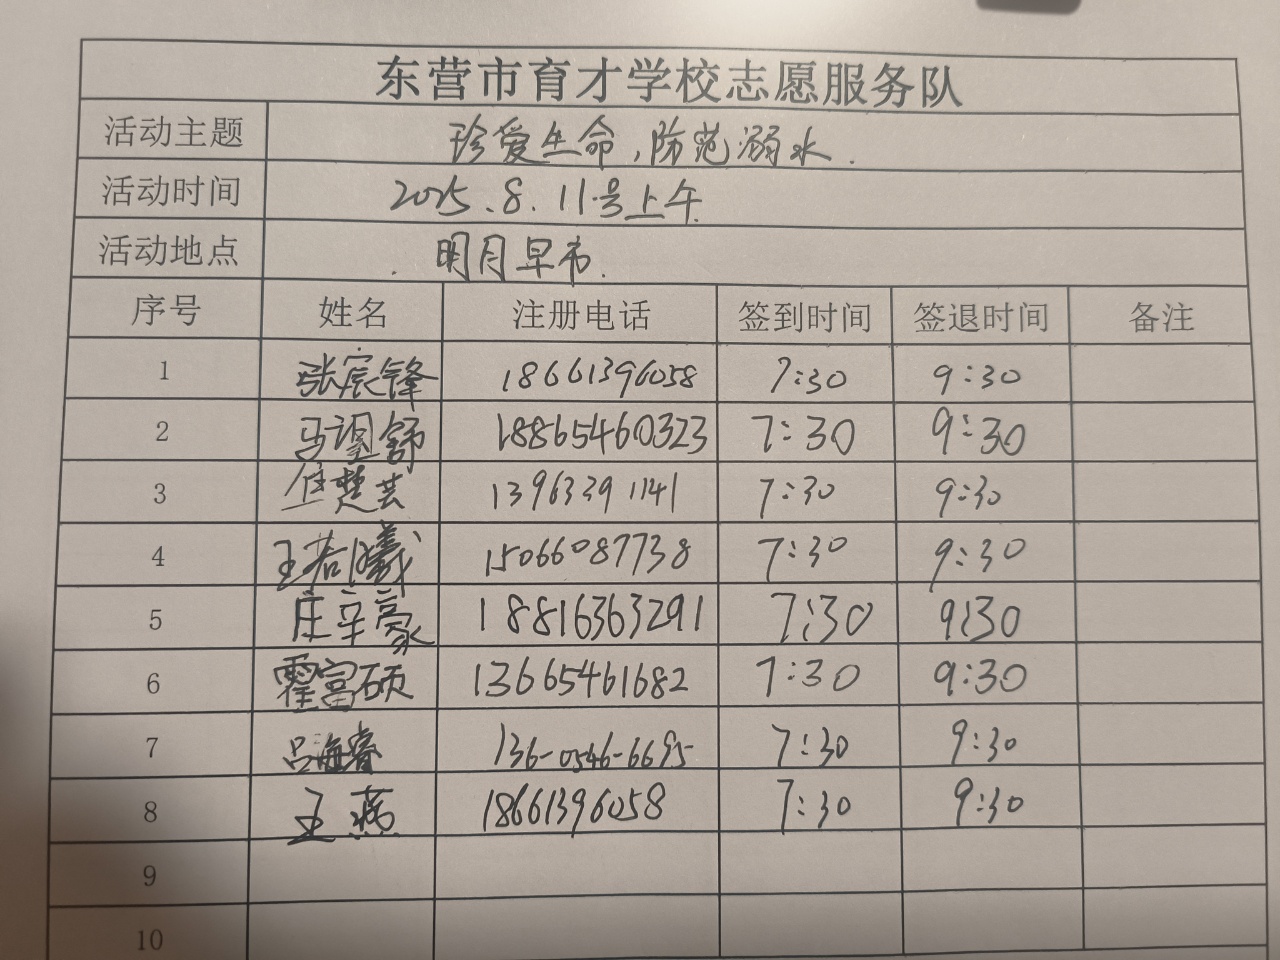 东营市育才学校志愿服务队
活动主题 珍爱生命,防范溺水.
活动时间 2025.8.11号上午
活动地点 . 明月早市.
序号 姓名 注册电话 签到时间 签退时间 备注
1 张宸锋 18661396058 7:30 9:30
2 马 舒 18865460323 7:30 9:30
3 任楚芸 13963391141 7:30 9:30
4 王若曦 15066087738 7:30 9:30
5 庄辛豪 18816363291 7:30 9:30
6 霍富硕 13665461682 7:30 9:30
7 吕海睿 136-0546-6695 7:30 9:30
8 王燕 18661396058 7:30 9:30
9
10